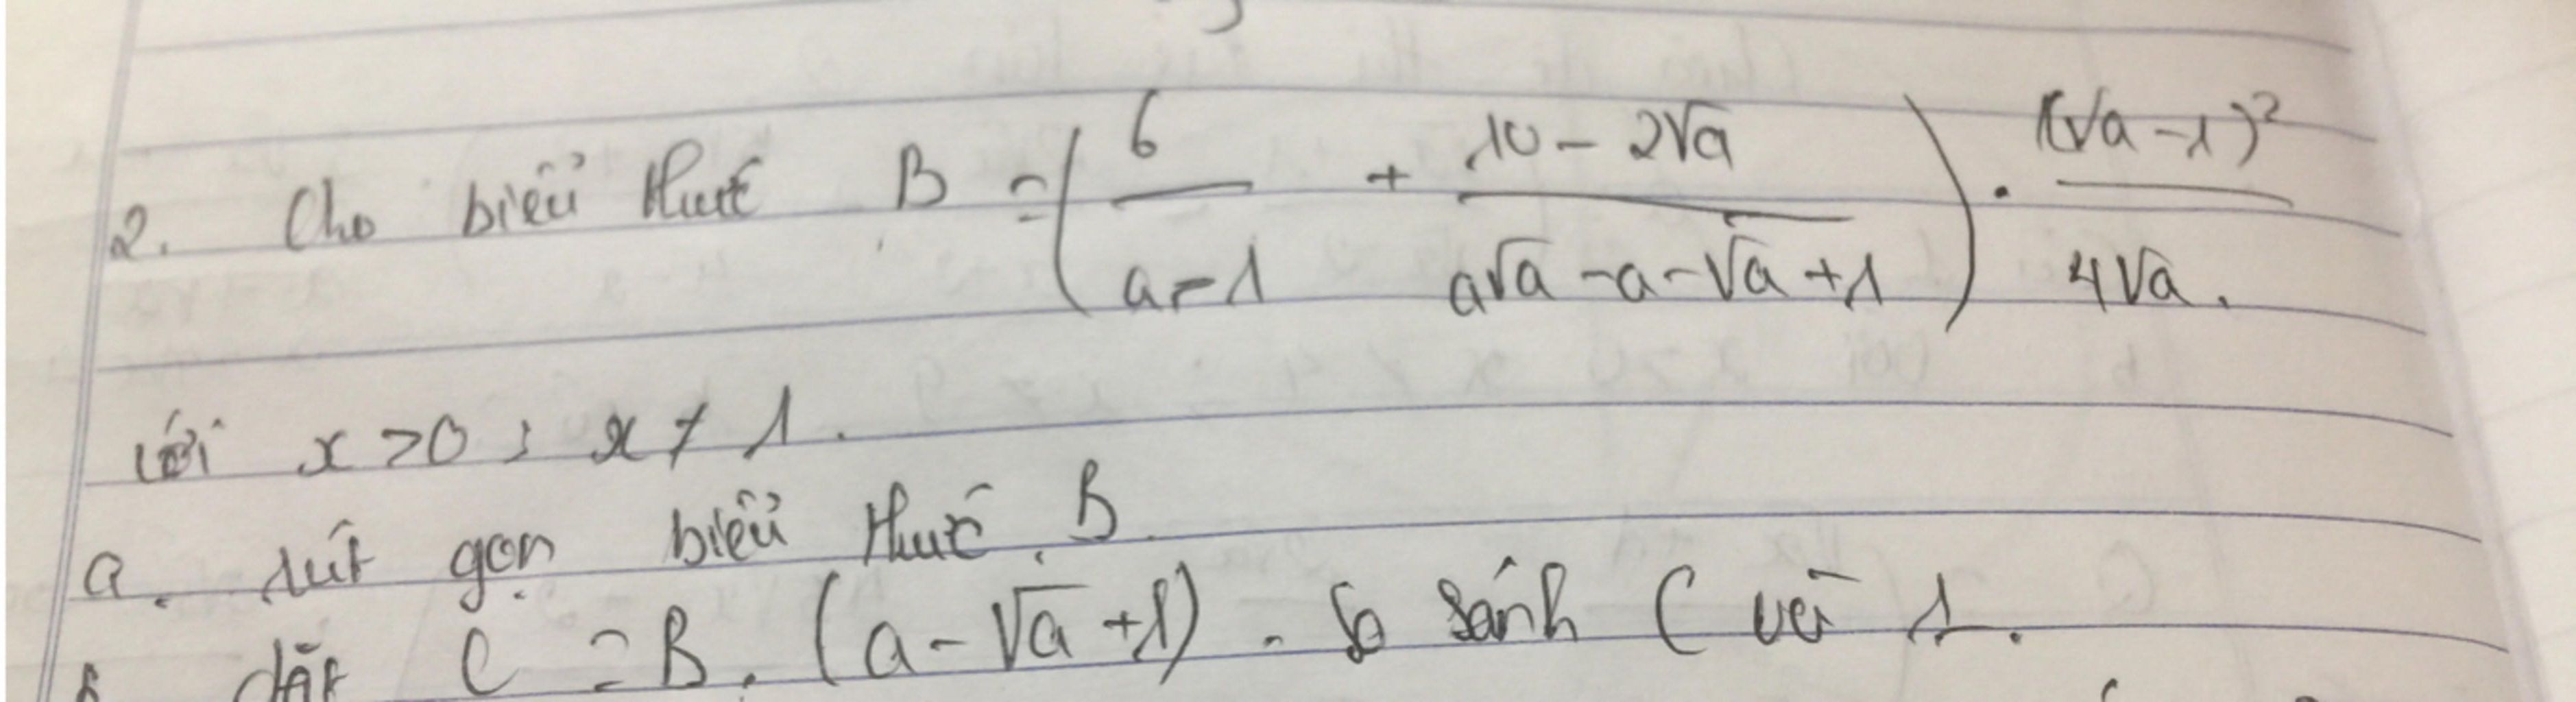 2. Cho biểu thức B = (6/(a-1) + (10-2√a)/(a√a-a-√a+1)) . (√a-1)²/(4√a).
với x>0; x≠1.
a. rút gọn biểu thức B.
b. đặt C = B. (a-√a+1). So sánh C với 1.